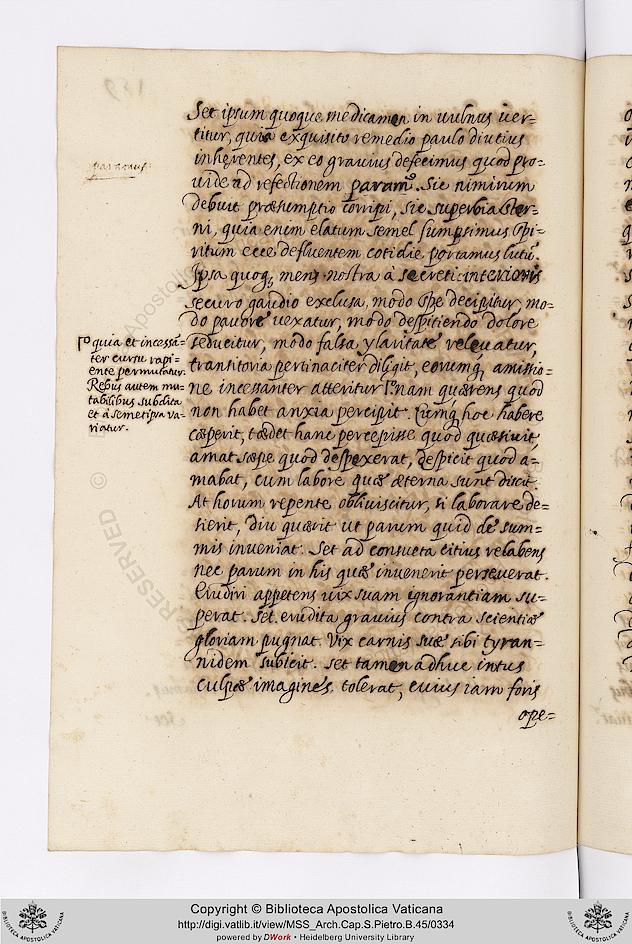 Set ipsum quoque medicamen in uulnus uer-
titur, quia exquisito remedio paulo diutius
inhęrentes, ex eo grauius defecimus quod pro-
uide ad refectionem paramꝰ. Sic nimirum
debuit præsumptio corripi, sic superbia ster-
ni, quia enim elatum semel sumpsimus spi-
ritum ecce defluentem cotidie portamus lutū.
Ipsa quoq; mens nostra à secreti interioris
securo gaudio exclusa, modo spe decipitur, mo-
do pauore uexatur, modo despitiendo dolore
seducitur, modo falsa ylaritate releuatur,
transitoria pertinaciter diligit, eorumq́; amissio-
ne incessanter atteritur nam quærens quod
non habet anxia percipit. Cumq; hoc habere
cæperit, tædet hanc percepisse quod quæsiuit
amat sæpe quod despexerat, despicit quod a-
mabat, cum labore quæ æterna sunt discit.
At horum repente obliuiscitur, si laborare de-
sierit, Diu quærit ut parum quid de sum-
mis inueniat. Set ad consueta citius relabens
nec parum in his quæ inuenerit perseuerat.
Erudiri appetens uix suam ignorantiam su-
perat. Set erudita grauius contra scientiæ
gloriam pugnat. Vix carnis suæ sibi tyran-
nidem subicit. Set tamen adhuc intus
culpæ imagines tolerat, cuius iam foris
ope-
quia et incessā-
ter cursu rapi-
ente permutatur.
Rebus autem mu-
tabilibus subdita
et à semetipsa va-
riatur.
139
© RESERVED
Copyright © Biblioteca Apostolica Vaticana
http://digi.vatlib.it/view/MSS_Arch.Cap.S.Pietro.B.45/0334
powered by DWork • Heidelberg University Library